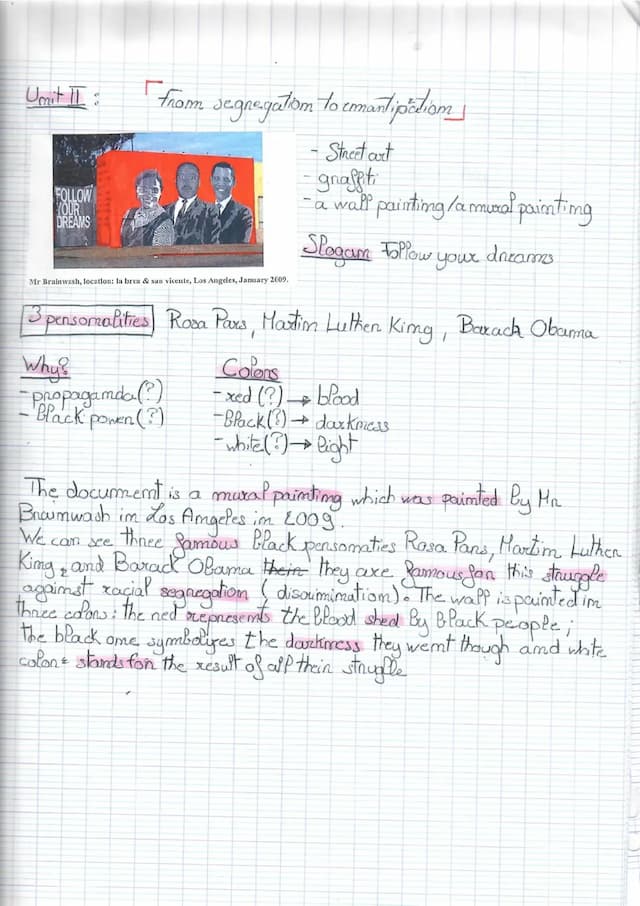 Unit II : "From segregation to emantipation"
- Street art
- graffiti
- a wall painting/a mural painting
FOLLOW
YOUR
DREAMS
Slogan Follow your dreams
Mr Brainwash, location: la brea & san vicente, Los Angeles, January 2009.
3 personalities Rosa Pars, Martin Luther King, Barack Obama
Why?
- propaganda(?)
- Black power(?)
Colors
- red (?) → blood
- Black(?) → darkness
- white(?) → light
The document is a mural painting which was painted by Mr
Brawnwash in Los Angeles in 2009.
We can see three famous black personaties Rosa Pars, Martin Luther
King, and Barack Obama their they are famous for this struggle
against racial segregation (discrimination). The wall is painted in
three colors: the red represents the blood shed by black people;
the black one symbolyzes the darkness they went though and white
color stands for the result of all their struggle